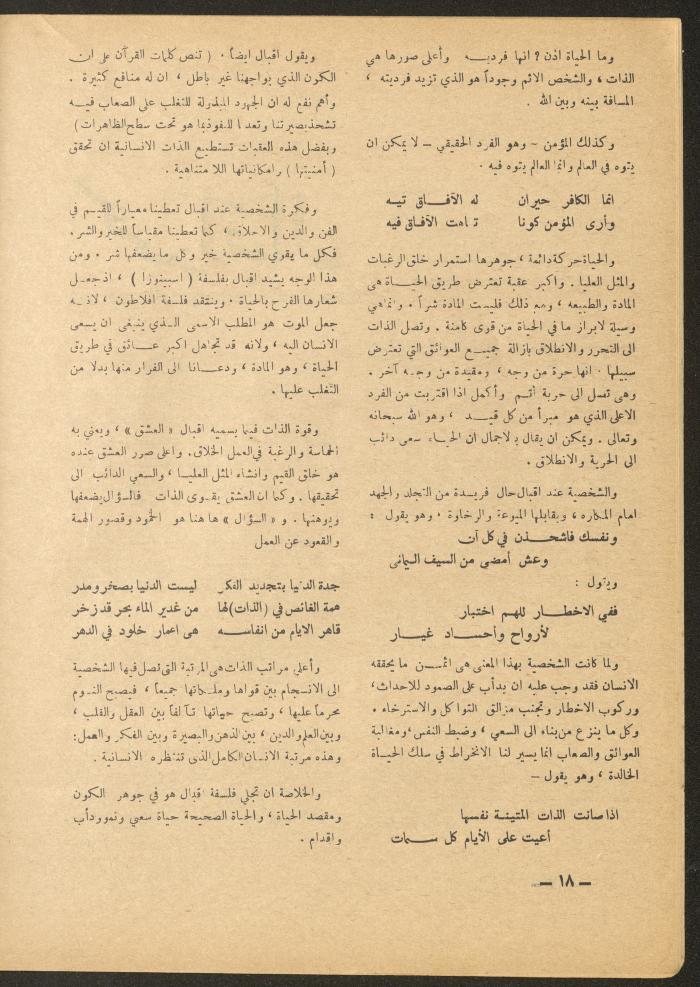 وما الحياة اذن ? انها فرديـــه وأعلى صورها هي
الذات ، والشخص الاتم وجوداً هو الذي تزيد فرديته ،
المسافة بينه وبين الله .
وكذلك المؤمن - وهو الفرد الحقيقي – لا يمكن ان
يتوه في العالم وانما العالم يتوه فيه .
انما الكافر حيران له الآفــاق تيــه
وأرى المؤمن كونا تاهت الآفاق فيه
والحياة حركة دائمة ، جوهرها استمرار خلق الرغبات
والمثل العليا . واكبر عقبة تعترض طريق الحيــاة هى
المادة والطبيعه ، ومع ذلك فليست المادة شراً . وانما هي
وسيلة لابراز ما في الحياة من قوى كامنة . وتصل الذات
الى التحرر والانطلاق بازالة جميــع العوائق التي تعترض
سبيلها . انها حرة من وجه ، ومقيدة من وجــه آخر .
وهى تصل الى حرية أتــم وأكمل اذا اقتربت من الفرد
الاعلى الذي هو مبرأ من كل قيــد ، وهو الله سبحانه
وتعالى . ويمكن ان يقال بالاجمال ان الحيــاة سعى دائب
الى الحرية والانطلاق .
والشخصية عند اقبال حال فريــدة من التجلد والجهد
امام المكاره ، ويقابلها الميوعة والرخاوة . وهو يقول :
ونفسك فاشحـــذن في كل آن
وعش أمضى من السيف اليمانى
ويقول :
ففي الاخطــار للهــم اختبار
لأرواح وأجســاد غيــار
ولما كانت الشخصية بهذا المعنى هى اثمــن ما يحققه
الانسان فقد وجب عليه ان يدأب على الصمود للاحداث،
وركوب الاخطار وتجنب مزالق التواكل والاسترخاء .
وكل ما ينزع من بناء الى السعي ، وضبط النفس، ومغالبة
العوائق والصعاب انما يسير لنا الانخراط في سلك الحيــاة
الخالدة ، وهو يقول –
اذا صانت الذات المتينــة نفسها
أعيت على الأيام كل ســمات
ويقول اقبال ايضاً . ( تنص كلمات القرآن على ان
الكون الذي يواجهنا غير باطل ، ان له منافع كثيرة .
وأهم نفع له ان الجهود المبذولة للتغلب على الصعاب فيــه
تشحذ بصيرتنا وتعدنا للنفوذ بما هو تحت سطح الظاهرات )
وبفضل هذه العقبات تستطيع الذات الانسانية ان تحقق
( أمنيتها ) وامكانياتها اللا متناهية .
وفكرة الشخصية عند اقبال تعطينا معياراً للقيــم في
الفن والدين والاخلاق، كما تعطينا مقياساً للخير والشر .
فكل ما يقوي الشخصية خير وكل ما يضعفها شر . ومن
هذا الوجه يشيد اقبال بفلسفة ( اسبينوزا ) ، اذ جعــل
شعارها الفرح بالحياة . وينتقد فلسفة افلاطون ، لانــه
جعل الموت هو المطلب الاسمى الــذي ينبغى ان يسعى
الانسان اليه ، ولانه قد تجاهل اكبر عــائق في طريق
الحياة ، وهو المادة ، ودعــانا الى الفرار منها بدلا من
التغلب عليها .
وقوة الذات فيما يسميه اقبال « العشق » ، ويعني به
الحماسة والرغبة في العمل الخلاق. واعلى صور العشق عنده
هو خلق القيم وانشاء المثل العليــا ، والسعي الدائب الى
تحقيقها . وكما ان العشق يقــوى الذات فالسؤال يضعفها
ويوهنها . و « السؤال » ها هنا هو الخمود وقصور الهمة
والقعود عن العمل
جدة الدنيا بتجديد الفكر ليست الدنيا بصخر ومدر
همة الغائص في (الذات) لها من غدير الماء بحر قد زخر
قاهر الايام من انفاســه هى اعمار خلود في الدهر
وأعلى مراتب الذات هى المرتبة التي تصل فيها الشخصية
الى الانسجام بين قواها وملكاتها جميعاً ، فيصبح النــوم
محرماً عليها ، وتصبح حياتها تــآلفاً بين العقل والقلب ،
وبين العلم والدين ، بين الذهن والبصيرة وبين الفكر والعمل:
وهذه مرتبة الانسان الكامل الذى تنتظره الانسانية .
والخلاصة ان تجلي فلسفة اقبال هو في جوهر الكون
ومقصد الحياة ، والحياة الصحيحة حياة سعي ونمو ودأب
واقدام .
– ١٨ –